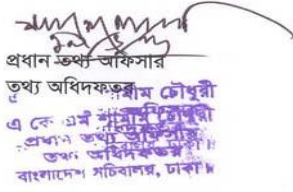 প্রধান তথ্য অফিসার
তথ্য অধিদফতর
শামীম চৌধুরী
এ কে এম শামীম চৌধুরী
প্রধান তথ্য অফিসার
তথ্য অধিদফতর
বাংলাদেশ সচিবালয়, ঢাকা।